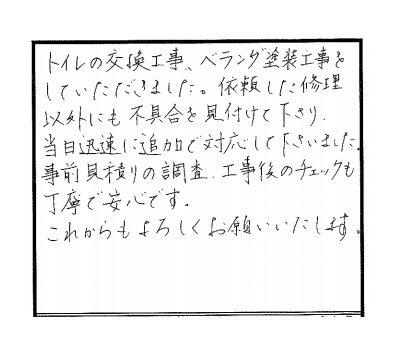 トイレの交換工事、ベランダ塗装工事を
していただきました。依頼した修理
以外にも不具合を見付けて下さり、
当日迅速に追加で対応して下さいました。
事前見積りの調査、工事後のチェックも
丁寧で安心です。
これからもよろしくお願いいたします。